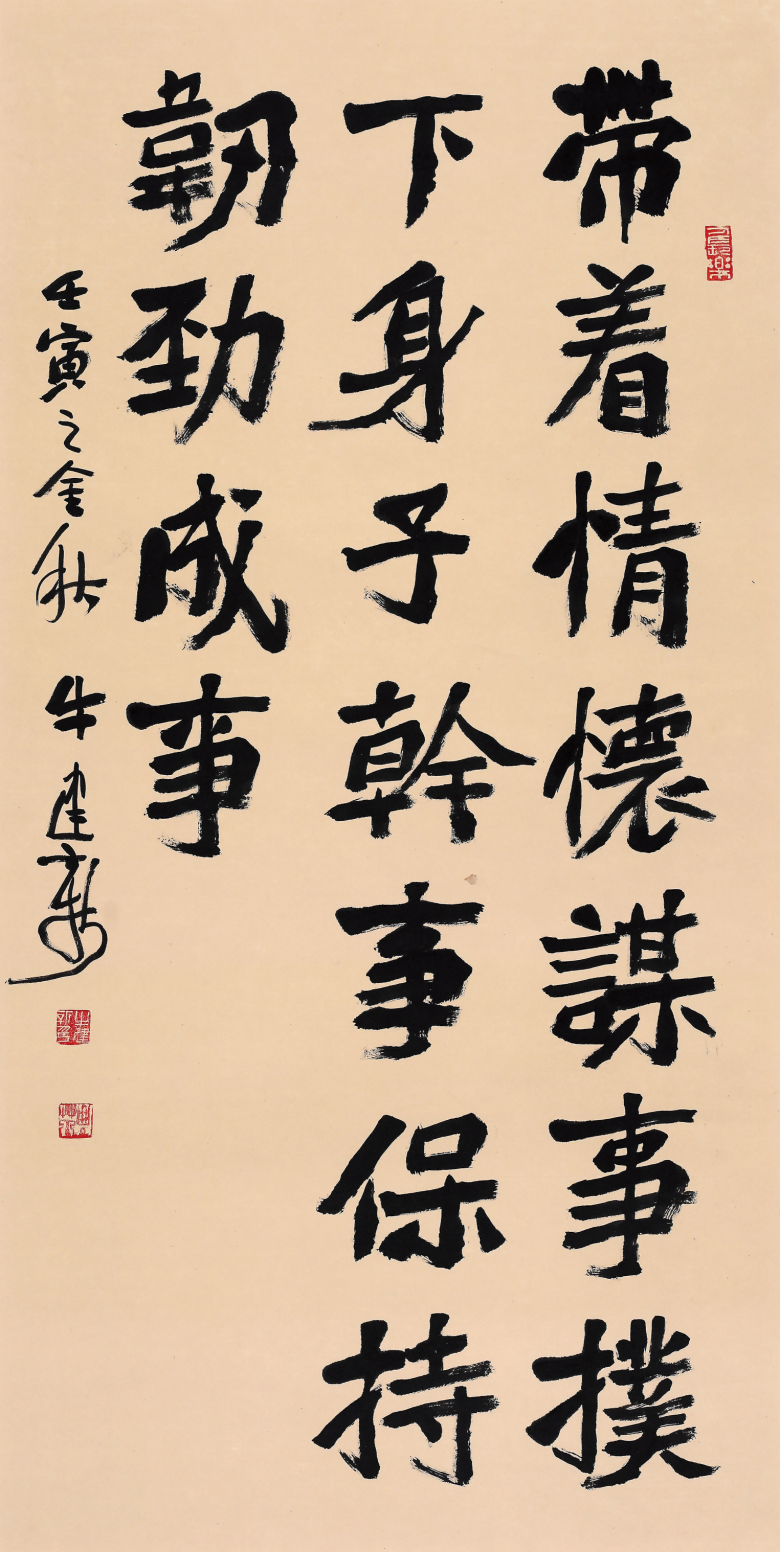 帶着情懷謀事撲
下身子幹事保持
韌勁成事
壬寅之金秋 牛建